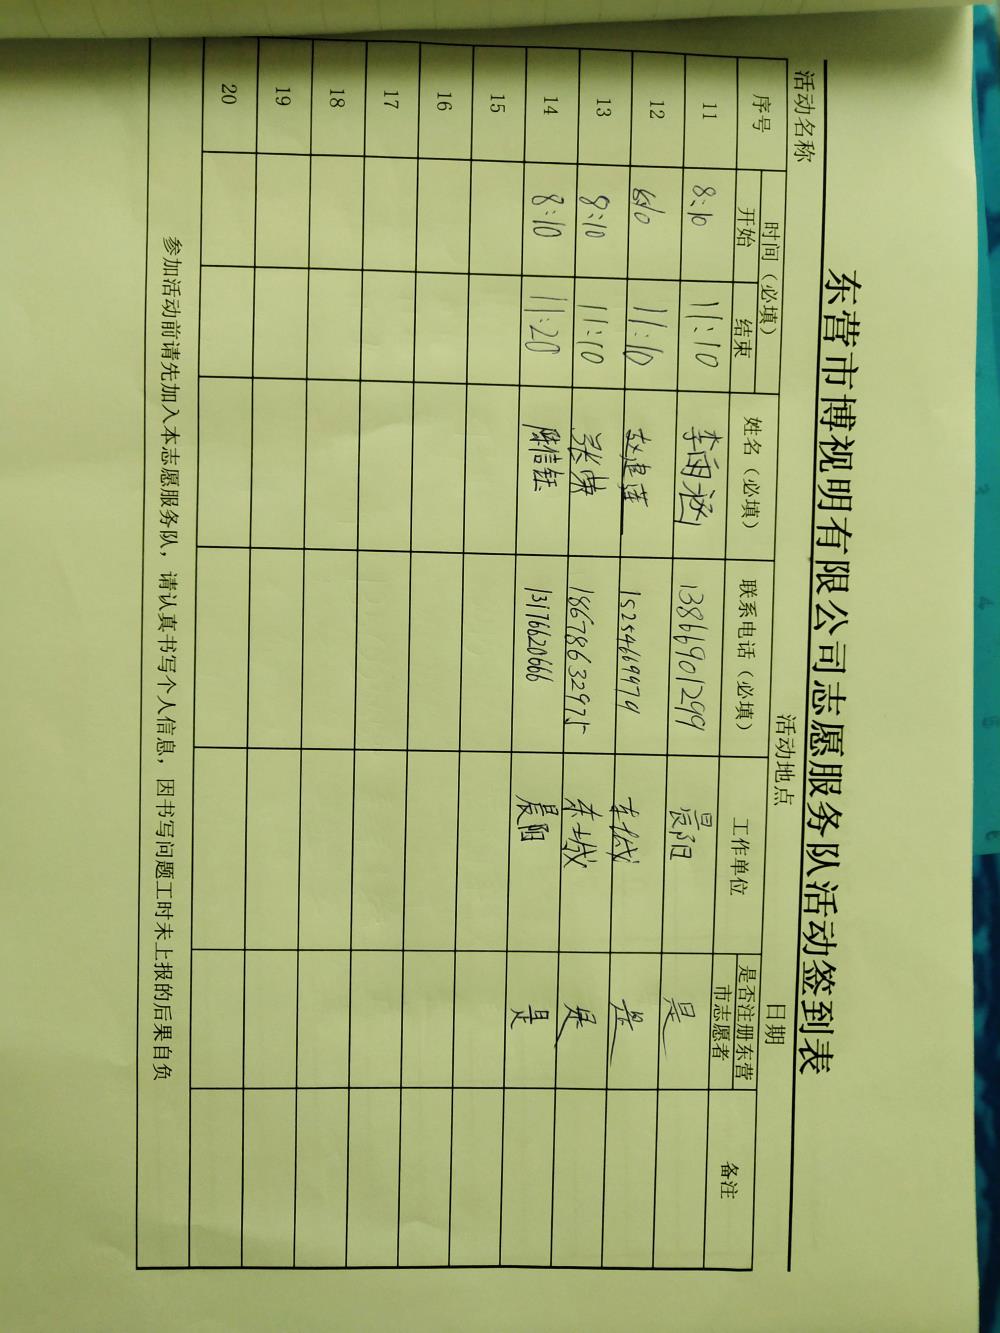 东营市博视明有限公司志愿服务队活动签到表
活动名称 活动地点 日期
序号 时间（必填） 姓名（必填） 联系电话（必填） 工作单位 是否注册东营市志愿者 备注
开始 结束
11 8:10 11:10 李雨涵 13866901299 晨阳 是
12 11:10 15254669979 东城 是
13 8:10 11:10 张荣 18678632975 东城 是
14 8:10 11:20 陈信钰 13176620666 晨阳 是
15
16
17
18
19
20
参加活动前请先加入本志愿服务队，请认真书写个人信息，因书写问题工时未上报的后果自负